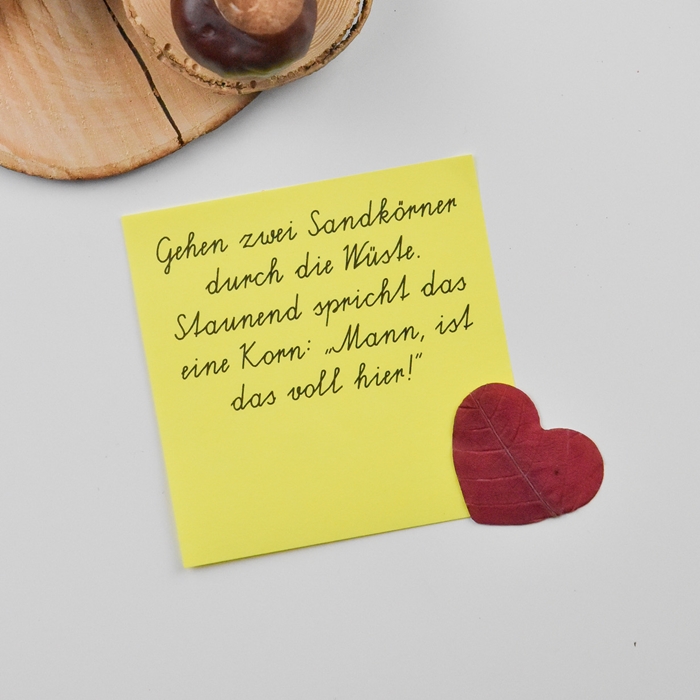 Gehen zwei Sandkörner
durch die Wüste.
Staunend spricht das
eine Korn: „Mann, ist
das voll hier!“